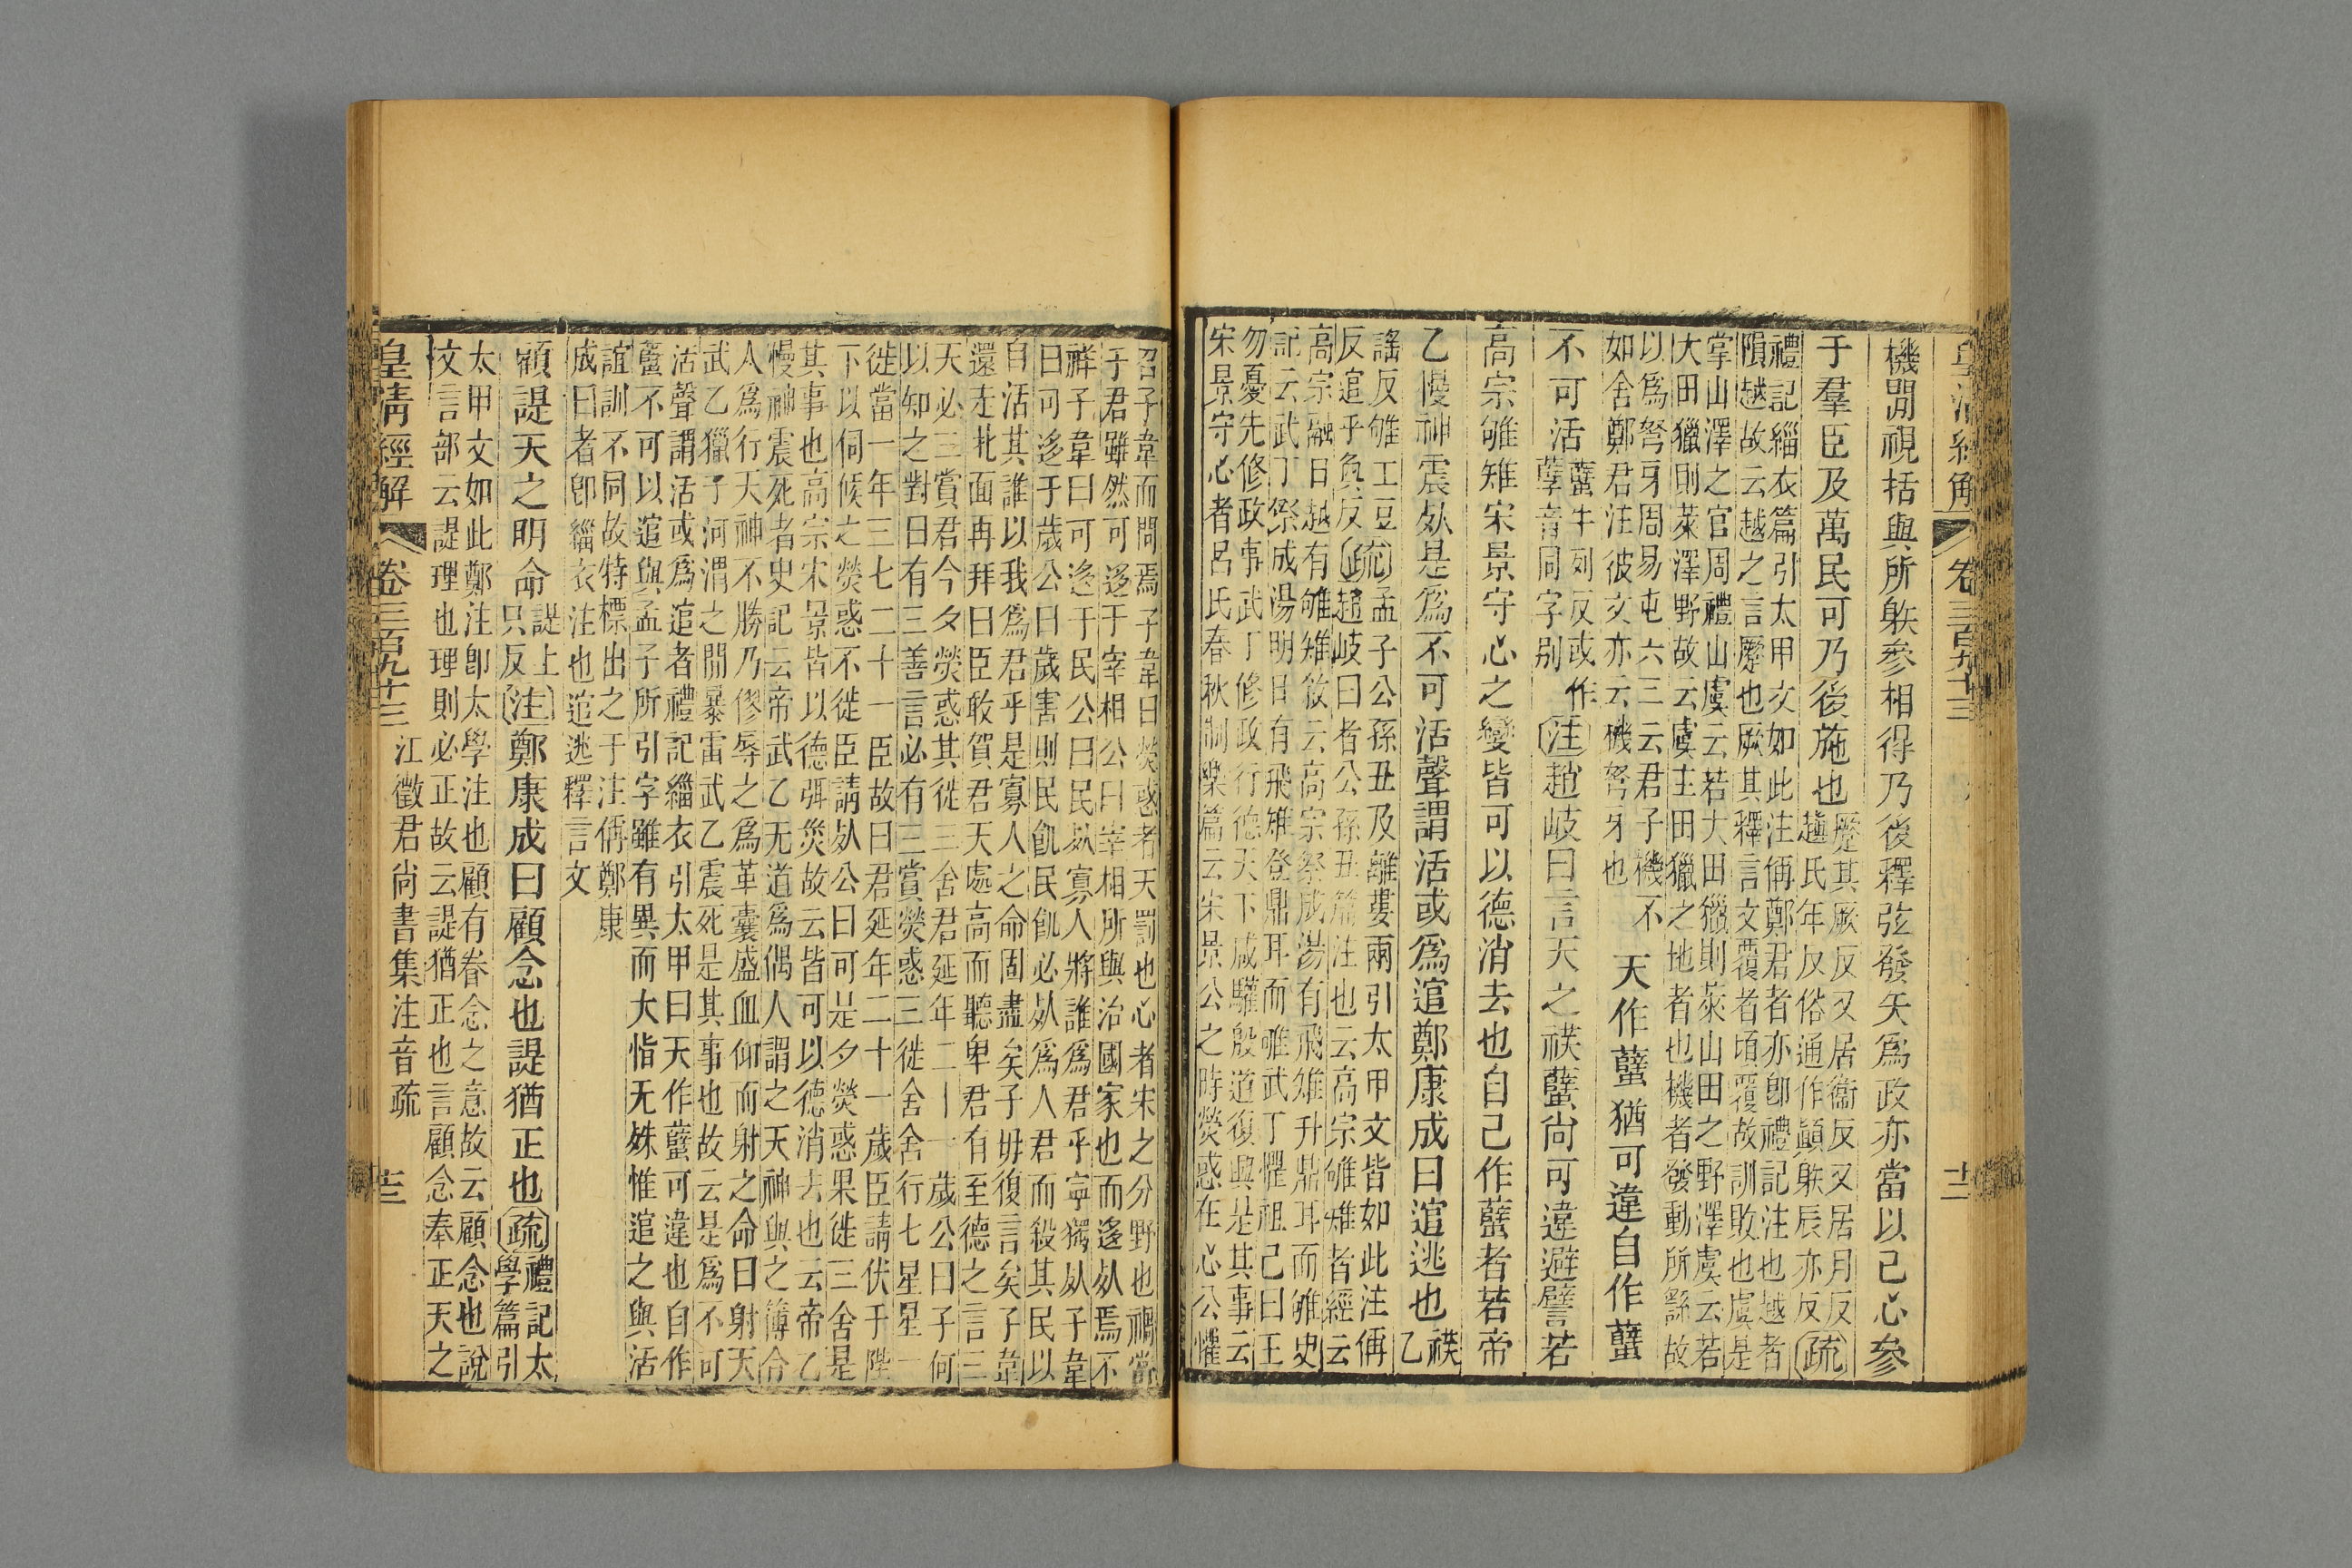 皇清經解 卷三百九十三 十二
機閒視括與所䠶參相得乃後釋弦發矢爲政亦當以己心參
于羣臣及萬民可乃後施也
蹷其厥反又居衞反又居月反
趙氏年反俗通作顚䠶辰亦反疏
禮記緇衣篇引太甲文如此注偁鄭君者亦卽禮記注也越者
隕越故云越之言蹷也厥其釋言文覆者頃覆故訓敗也虞是
掌山澤之官周禮山虞云若大田獵則萊山田之野澤虞云若
大田獵則萊澤野故云虞主田獵之地者也機者發動所繇故
以爲弩牙周易屯六三云君子機不
如舍鄭君注彼文亦云機弩牙也
天作蠥猶可違自作蠥
不可活
蠥牛列反或作
孽音同字別
注趙岐曰言天之祅蠥尙可違避譬若
高宗雊雉宋景守心之變皆可以德消去也自己作蠥者若帝
乙慢神震𣦸是爲不可活聲謂活或爲逭鄭康成曰逭逃也
祅乙
謠反雊工豆疏孟子公孫丑及離婁兩引太甲文皆如此注偁
反逭乎奐反趙岐曰者公孫丑篇注也云高宗雊雉者經云
高宗融日越有雊雉敘云高宗祭成湯有飛雉升鼎耳而雊史
記云武丁祭成湯明日有飛雉登鼎耳而雊武丁懼祖己曰王
勿憂先修政事武丁修政行德天下咸驩殷道復興是其事云
宋景守心者呂氏春秋制樂篇云宋景公之時熒惑在心公懼
召子韋而問焉子韋曰熒惑者天罰也心者宋之分野也禍當
于君雖然可迻于宰相公曰宰相所與治國家也而迻𣦸焉不
祥子韋曰可迻于民公曰民𣦸寡人將誰爲君乎寧獨𣦸子韋
曰可迻于歲公曰歲害則民飢民飢必𣦸爲人君而殺其民以
自活其誰以我爲君乎是寡人之命固盡矣子毋復言矣子韋
還走北面再拜曰臣敢賀君天處高而聽卑君有至德之言三
天必三賞君今夕熒惑其徙三舍君延年二十一歲公曰子何
以知之對曰有三善言必有三賞熒惑三徙舍舍行七星星一
徙當一年三七二十一臣故曰君延年二十一歲臣請伏于陛
下以伺候之熒惑不徙臣請𣦸公曰可是夕熒惑果徙三舍是
其事也高宗宋景皆以德弭災故云皆可以德消去也云帝乙
慢神震死者史記云帝武乙无道爲偶人謂之天神與之簙令
人爲行天神不勝乃僇辱之爲革囊盛血仰而射之命曰射天
武乙獵于河渭之閒暴雷武乙震死是其事也故云是爲不可
活聲謂活或爲逭者禮記緇衣引太甲曰天作蠥可違也自作
蠥不可以逭與孟子所引字雖有異而大恉无殊惟逭之與活
誼訓不同故特標出之于注偁鄭康
成曰者卽緇衣注也逭逃釋言文
顧諟天之明命
諟上
只反
注鄭康成曰顧念也諟猶正也疏
禮記太
學篇引
太甲文如此鄭注卽太學注也顧有眷念之意故云顧念也說
文言部云諟理也理則必正故云諟猶正也言顧念奉正天之
皇清經解 卷三百九十三 江徵君尙書集注音疏 十三